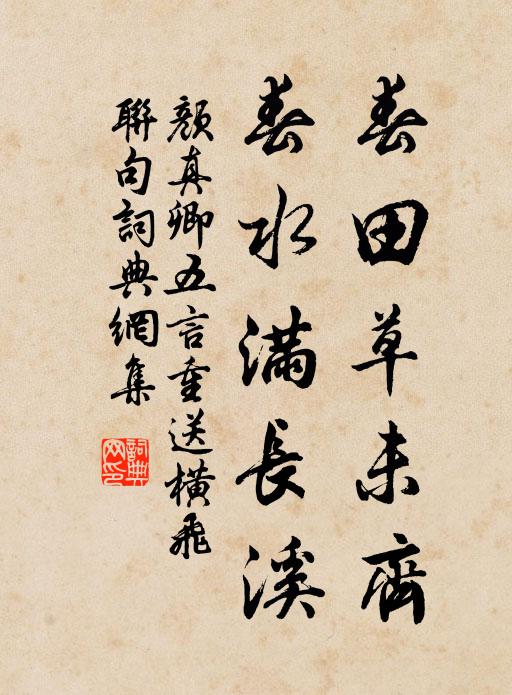 春田草未齊
春水滿長溪
顏真卿五言重送橫飛
聯句詞典網集
詞典
网印